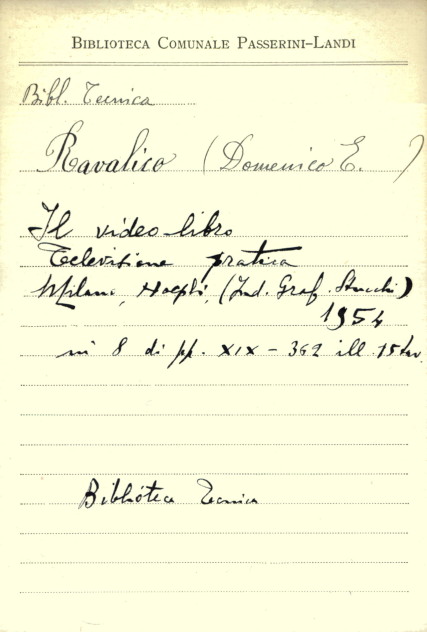 BIBLIOTECA COMUNALE PASSERINI-LANDI
Bibl. Tecnica
Ravalico (Domenico E. )
Il video-libro
Televisione pratica
Milano, Hoepli, (Ind. Graf. Stucchi)
1954
in 8 di pp. XIX - 362 ill. 15 tav.
Biblioteca Tecnica